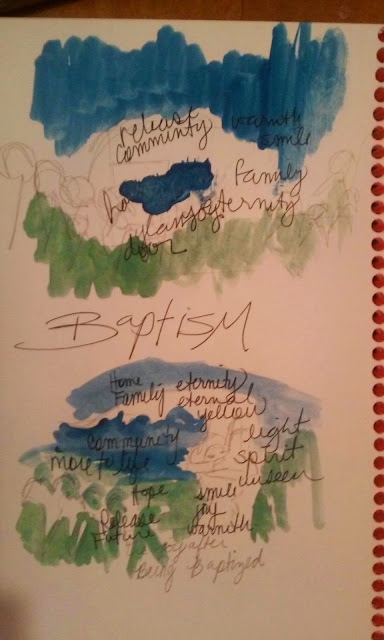 release
community warmth
smile
family
joy eternity
door
Baptism
Home
Family eternity
eternal
yellow
Community light
more to life spirit
unseen
Hope smile
Release joy
Future warmth
after
Being Baptized